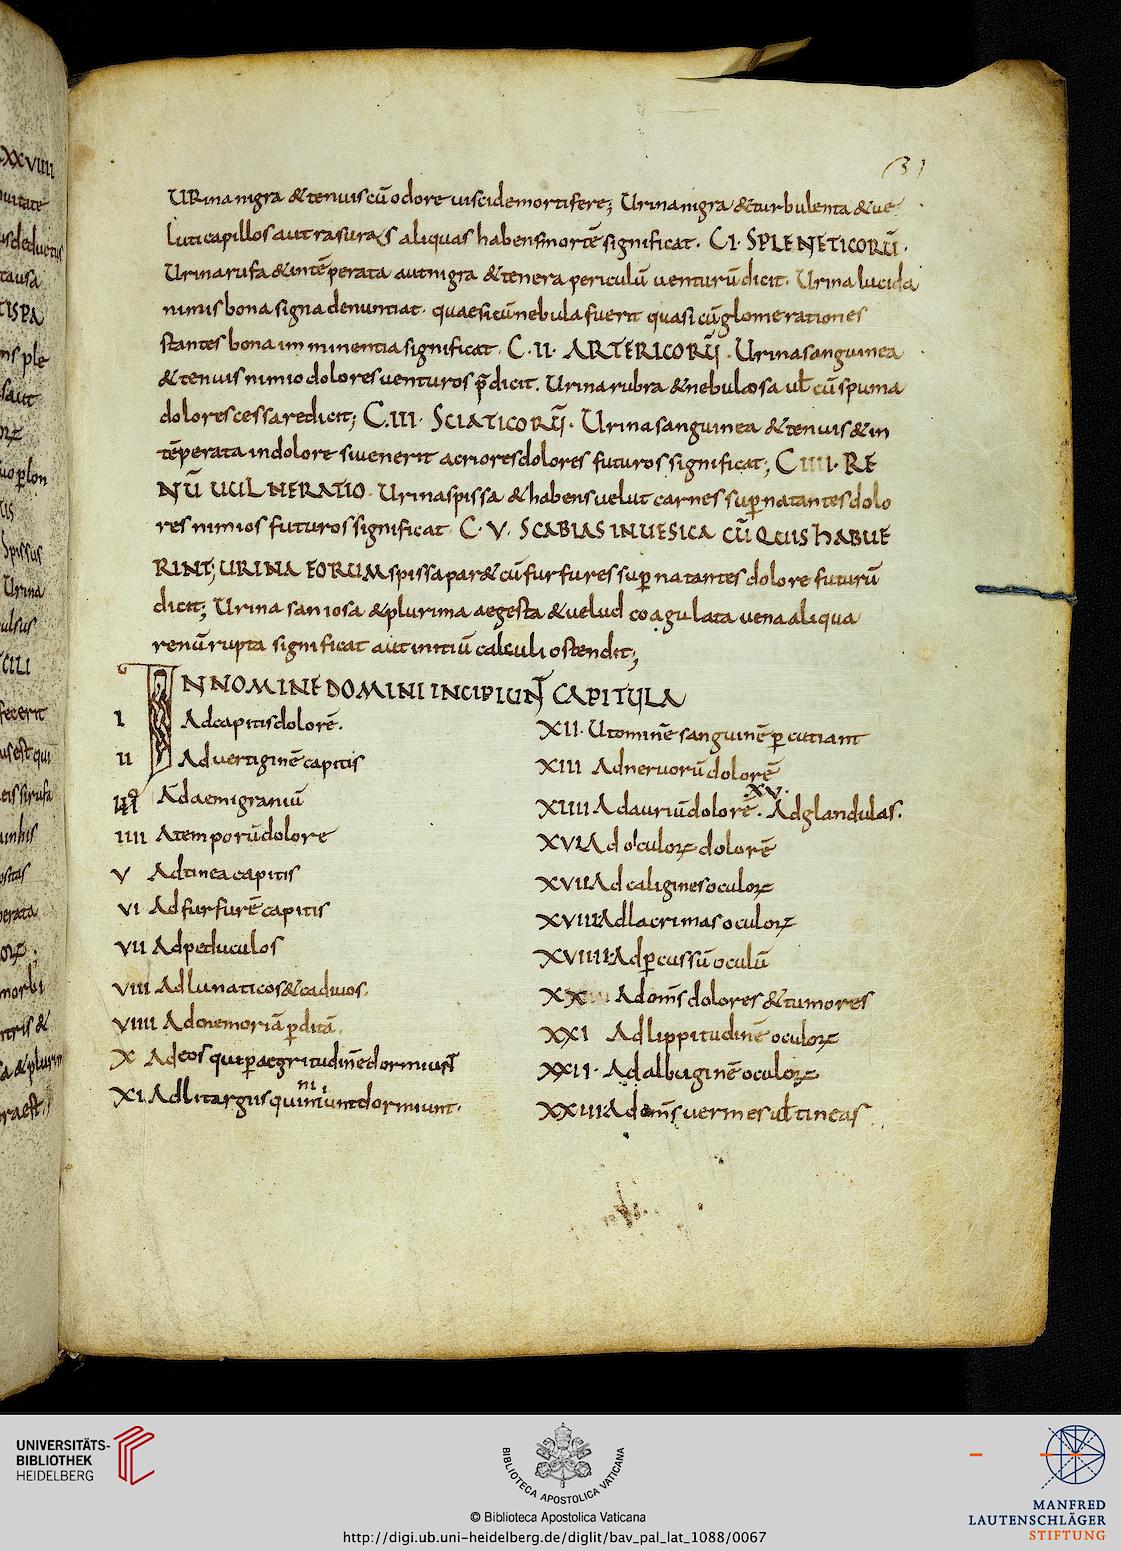 31
URina nigra & tenuis cū odore uiscide mortifere; Urina nigra & turbulenta & ue
luti capillos aut rasuras aliquas habens mortē significat. C I. SPLENETICORŪ.
Urina rufa & intēperata aut nigra & tenera periculū uenturū dicit. Urina lucida
nimis bona signa denuntiat. quae si cū nebula fuerit quasi cū glomerationes
stantes bona imminentia significat. C. II. ARTERICORŪ. Urina sanguinea
& tenuis nimio dolores uenturos p̄dicit. Urina rubra & nebulosa ul̄ cū spuma
dolores cessare dicit; C. III. SCIATICORŪ. Urina sanguinea & tenuis & in
tēperata in dolore si uenerit acriores dolores futuros significat; C IIII. RE
NŪ UULNERATIO. Urina spissa & habens uelut carnes sup̄natantes dolo
res nimios futuros significat. C. V. SCABIAS IN UESICA CŪ QUIS HABUE
RINT; URINA EORUM spissa par& cū furfures sup̄natantes dolore futurū
dicit; Urina saniosa & plurima aegesta & uelud coagulata uena aliqua
renū rupta significat aut initiū calculi ostendit;
IN NOMINE DOMINI INCIPIUNT̄ CAPITULA
I Ad capitis dolorē.
II Ad uertiginē capitis
III Ad aemigraniū
IIII A temporū dolore
V Ad tinea capitis
VI Ad furfurē capitis
VII Ad peduculos
VIII Ad lunaticos & cadiuos.
VIIII Ad memoriā p̄ditā
X Ad eos qui p̄ aegritudinē dormiunt̄
XI Ad litargus qui nimiunt dormiunt.
XII. Ut ominē sanguinē p̄cutiant
XIII Ad neruorū dolorē
XIIII Ad auriū dolorē. .XV. Ad glandulas.
XVI Ad oculoꝝ dolorē
XVII Ad caligines oculoꝝ
XVIII Ad lacrimas oculoꝝ
XVIIII Ad p̄cussū oculū
XX Ad om̄s dolores & tumores
XXI Ad lippitudinē oculoꝝ
XXII. Ad albuginē oculoꝝ
XXIII Ad om̄s uermes ul̄ tineas
UNIVERSITÄTS-
BIBLIOTHEK
HEIDELBERG
BIBLIOTECA APOSTOLICA VATICANA
© Biblioteca Apostolica Vaticana
http://digi.ub.uni-heidelberg.de/diglit/bav_pal_lat_1088/0067
MANFRED
LAUTENSCHLÄGER
STIFTUNG